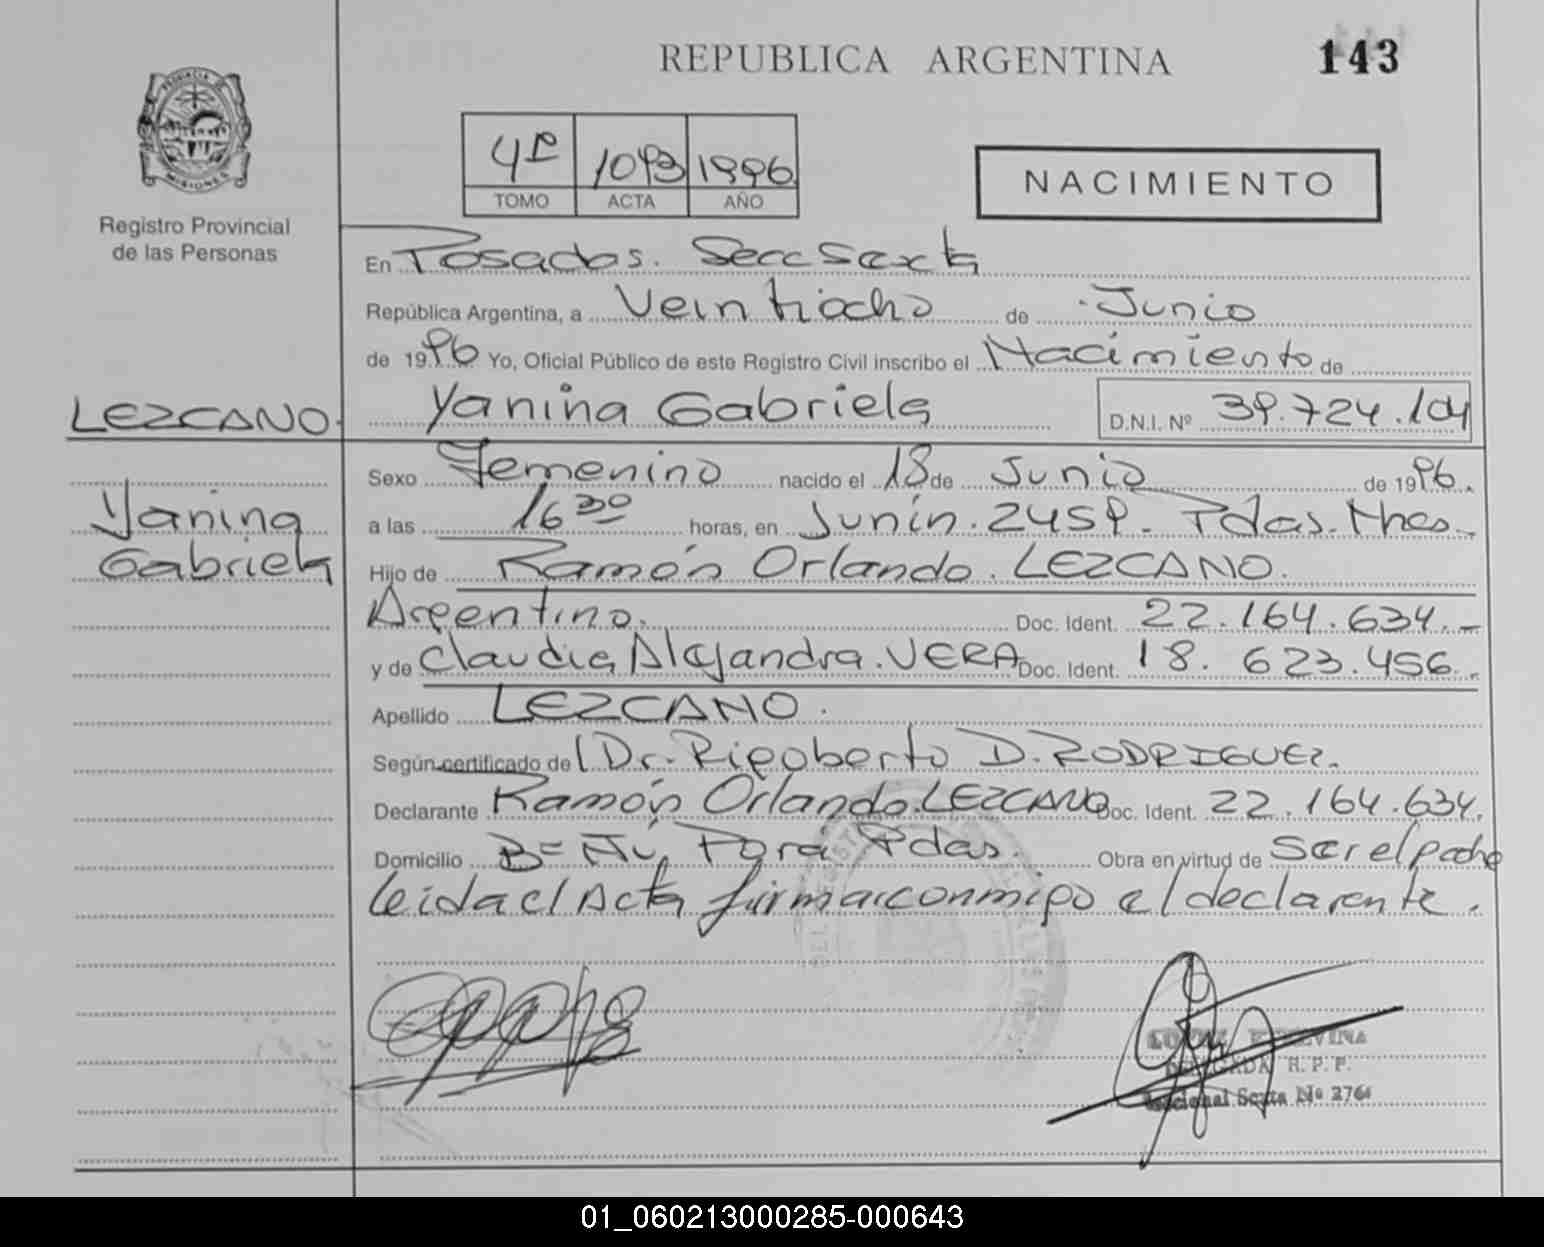 REPUBLICA ARGENTINA
143
PROVINCIA
MISIONES
Registro Provincial
de las Personas
4º 1093 1996
TOMO ACTA AÑO
NACIMIENTO
En Posadas. Secc Sexta
República Argentina, a Veintiocho de Junio
de 1996 Yo, Oficial Público de este Registro Civil inscribo el Nacimiento de
LEZCANO. Yanina Gabriela D.N.I. Nº 39.724.104
Sexo Femenino nacido el 18 de Junio de 1996.
Yanina
Gabriela
a las 16 30 horas, en Junín. 2459. Pdas. Mnes.
Hijo de Ramón Orlando. LEZCANO.
Argentino. Doc. Ident. 22.164.634.-
y de Claudia Alejandra. VERA Doc. Ident. 18. 623.456.
Apellido LEZCANO.
Según certificado de l Dr. Rigoberto D. RODRIGUEZ.
Declarante Ramón Orlando. LEZCANO Doc. Ident. 22.164.634.
Domicilio B= Ñú Porá Pdas. Obra en virtud de Ser el padre
leida el Acta firma conmigo el declarante.
R. P. P.
Seccional Sexta Nº 276
01_060213000285-000643